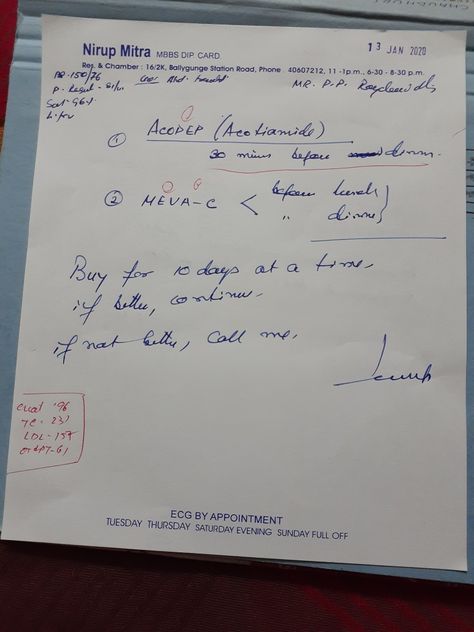 Nirup Mitra MBBS DIP CARD
13 JAN 2020
Res. & Chamber : 16/2K, Ballygunge Station Road, Phone : 40607212, 11 -1p.m., 6-30 - 8-30 p.m.
BP-150/76
MR. P.P.
① ACODEP (Acotiamide)
30 mins before dinner
② MEVA-C < before lunch
" dinner
Buy for 10 days at a time,
if better, continue.
if not better, call me.
creat '96
TC - 231
LDL - 157
ECG BY APPOINTMENT
TUESDAY THURSDAY SATURDAY EVENING SUNDAY FULL OFF